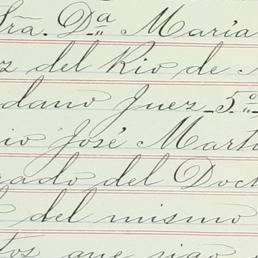 Sra. Da María
z del Rio de
dano Juez 5.o
io José Mart
rado del Doct
del mismo
tos que sigo